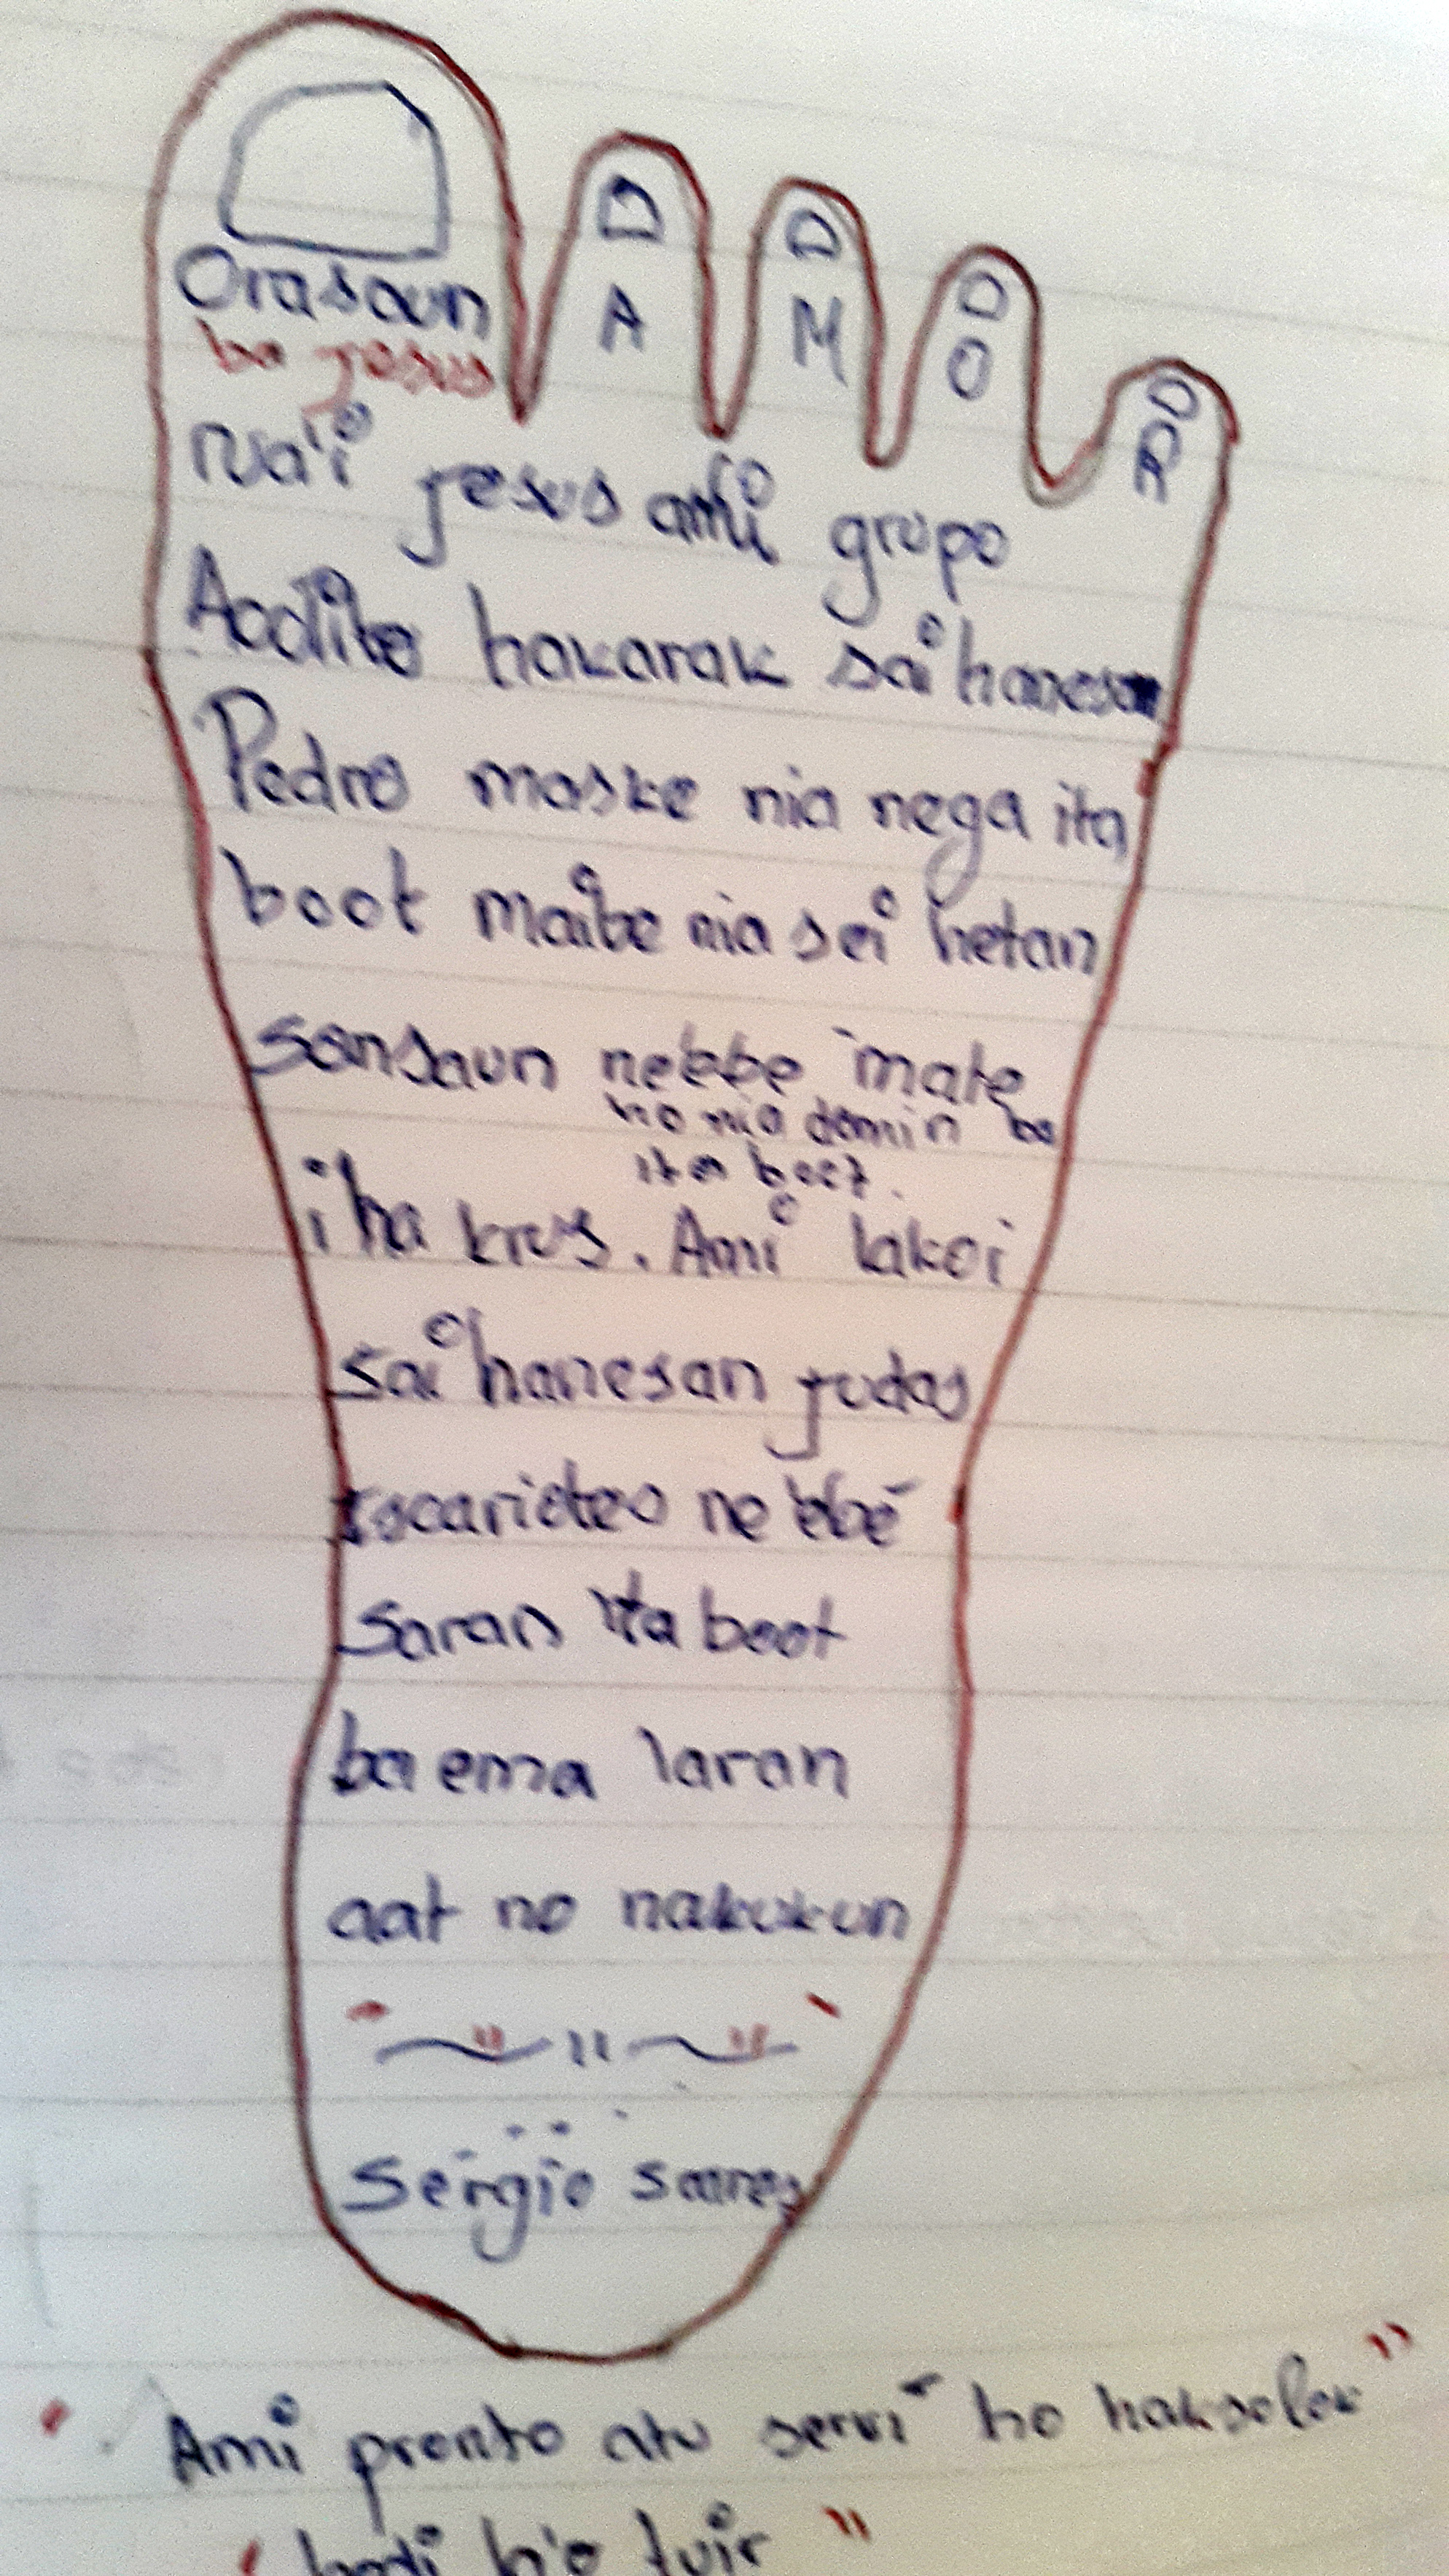 Orasaun
ba Jesus
A M O R
Na'i Jesus ami grupo
hakarak sai hanesan
Pedro maske nia nega ita
boot maibe nia sei hetan
sansaun nebbe mate
ho nia domin ba
ita boot.
iha krus. Ami lakoi
sai hanesan Judas
ne'ebbé
saran ita boot
ba ema laran
aat no nakukun
Sergio soares
" Ami pronto atu serví ho haksolok "
" hodi h'o tuir "